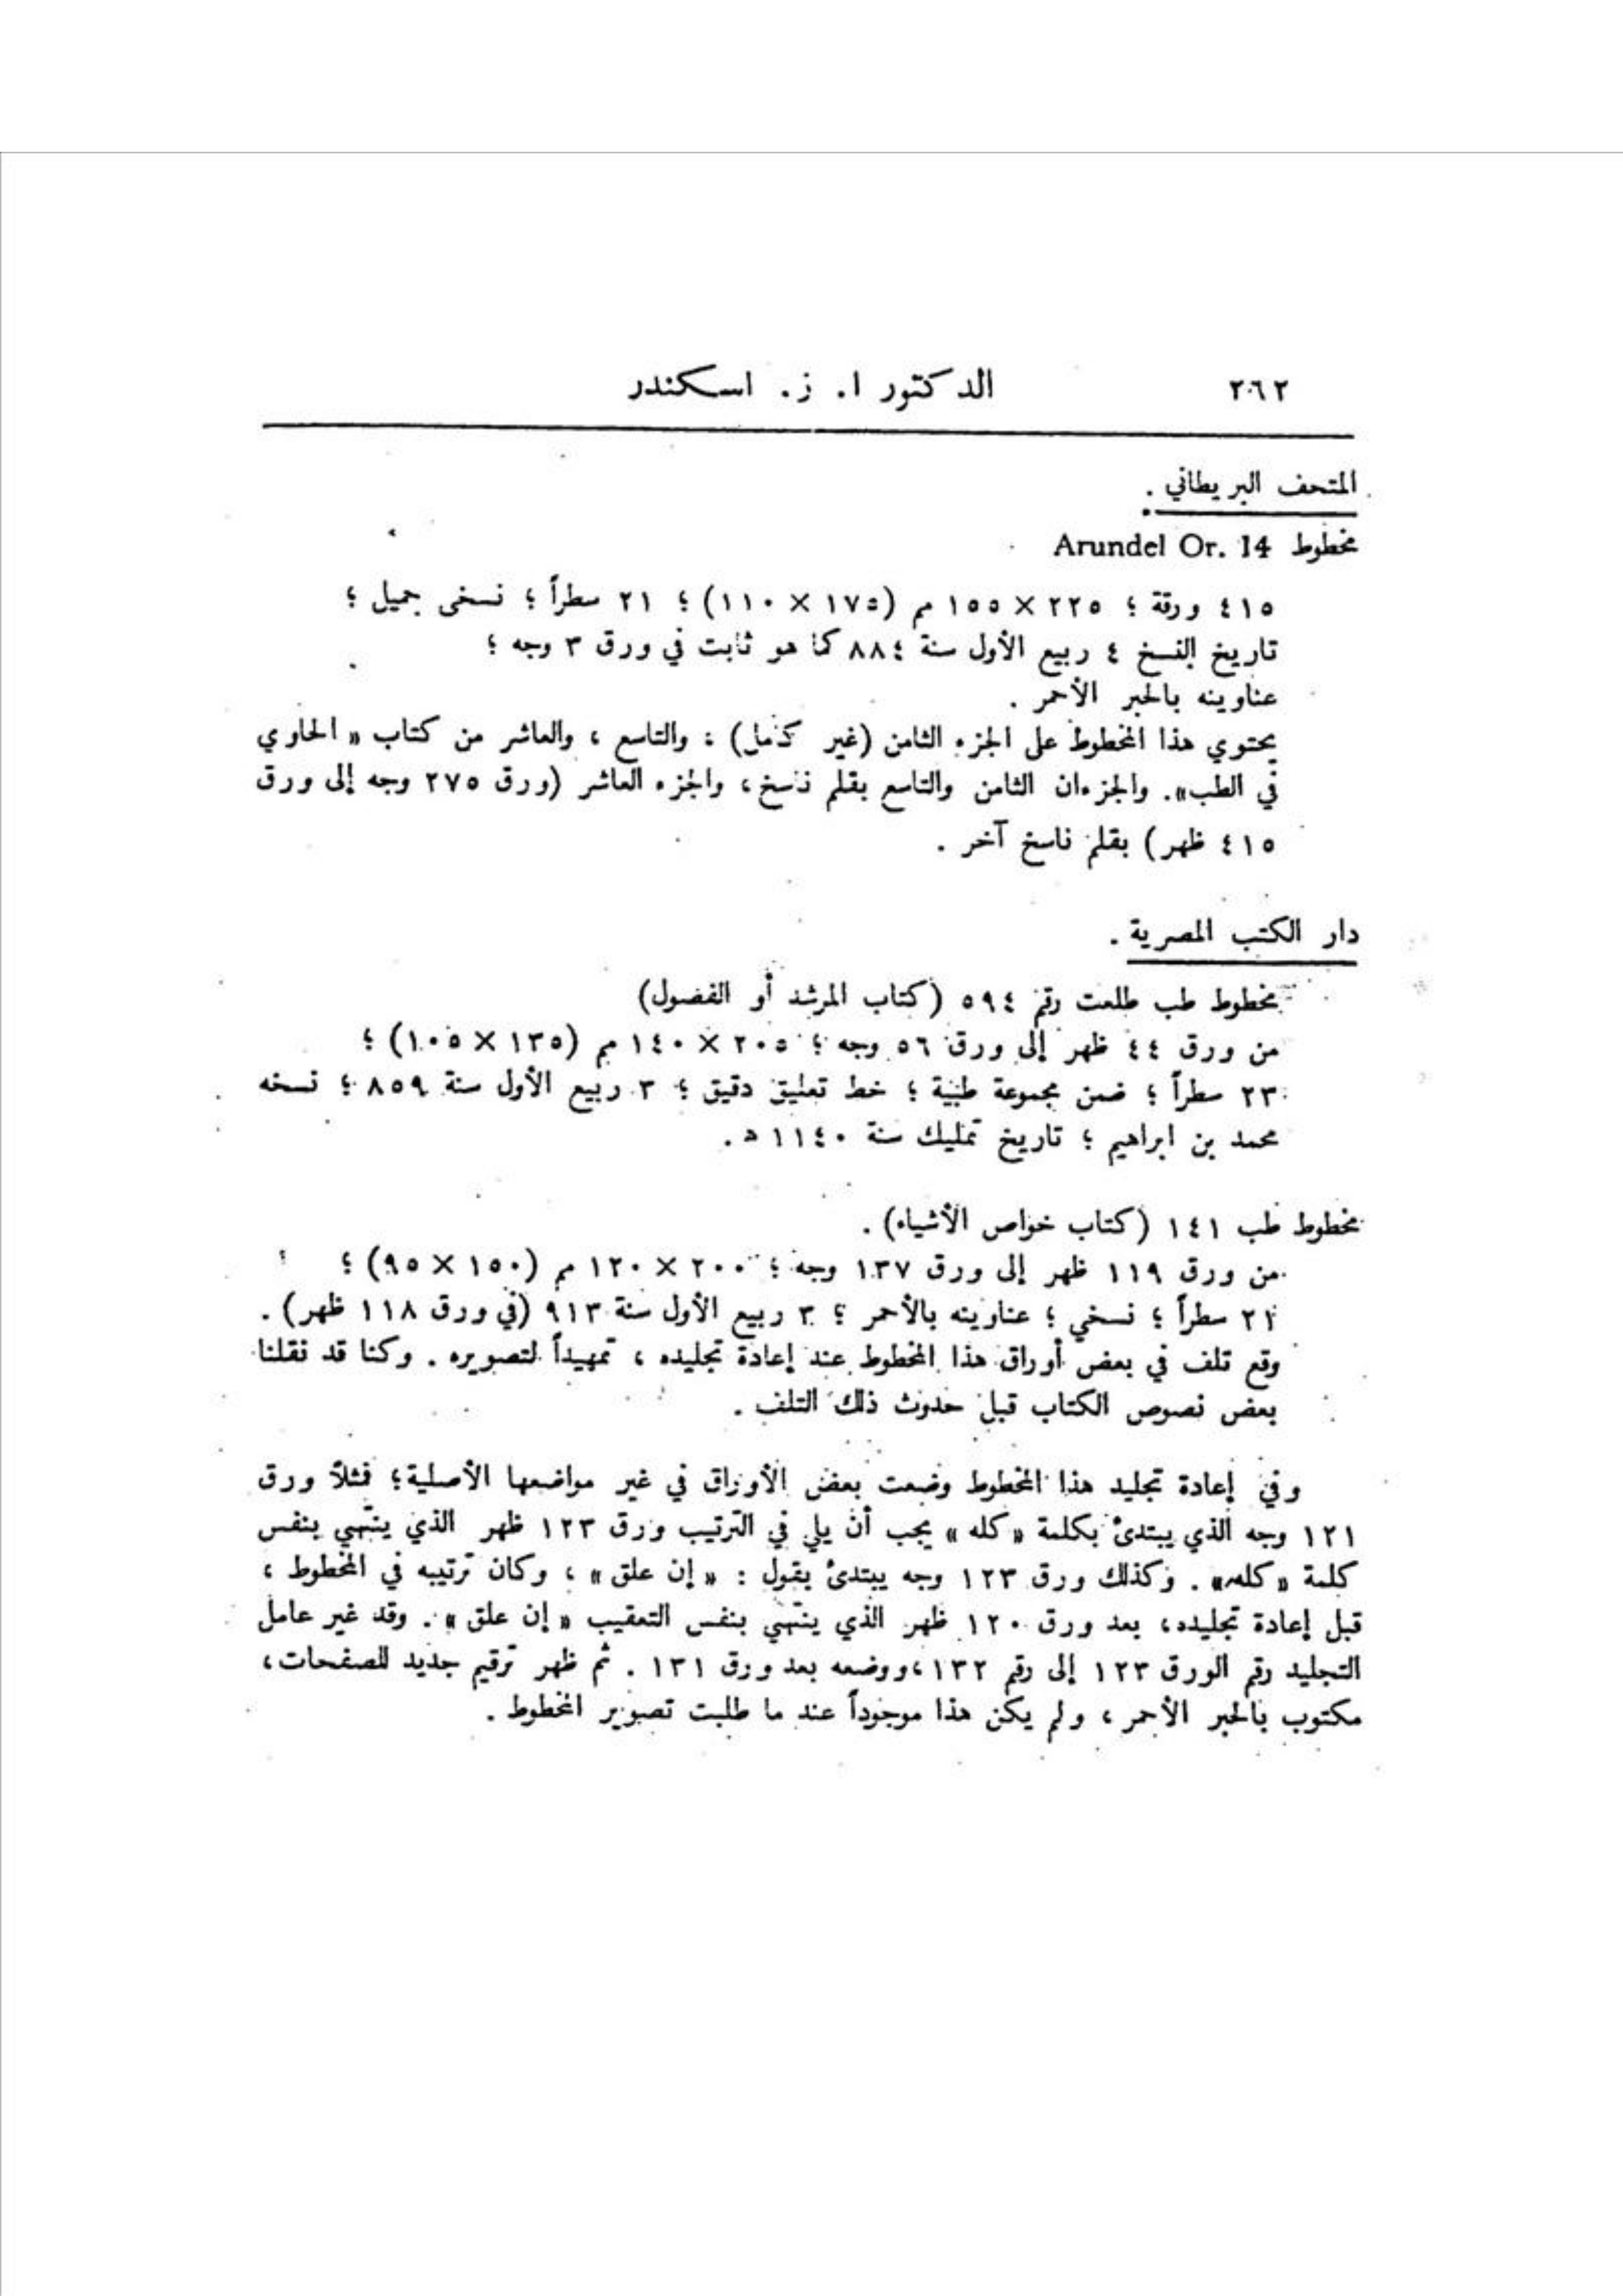 ٢٦٢
الدكتور ا. ز. اسكندر
المتحف البريطاني .
مخطوط Arundel Or. 14
٤١٥ ورقة ؛ ٢٢٥ × ١٥٥ م (١٧٥ × ١١٠) ؛ ٢١ سطراً ؛ نسخى جميل ؛
تاريخ النسخ ٤ ربيع الأول سنة ٨٨٤ كما هو ثابت في ورق ٣ وجه ؛
عناوينه بالحبر الأحمر .
يحتوي هذا المخطوط على الجزء الثامن (غير كامل) ؛ والتاسع ، والعاشر من كتاب « الحاوي
في الطب». والجزءان الثامن والتاسع بقلم ناسخ ، والجزء العاشر (ورق ٢٧٥ وجه إلى ورق
٤١٥ ظهر) بقلم ناسخ آخر .
دار الكتب المصرية .
مخطوط طب طلعت رقم ٥٩٤ (كتاب المرشد أو الفصول)
من ورق ٤٤ ظهر إلى ورق ٥٦ وجه ؛ ٢٠٥ × ١٤٠ مم (١٣٥ × ١٠٥) ؛
٢٣ سطراً ؛ ضمن مجموعة طبية ؛ خط تعليق دقيق ؛ ٣ ربيع الأول سنة ٨٥٩ ؛ نسخه
محمد بن ابراهيم ؛ تاريخ تمليك سنة ١١٤٠ ه .
مخطوط طب ١٤١ (كتاب خواص الأشياء) .
من ورق ١١٩ ظهر إلى ورق ١٣٧ وجه ؛ ٢٠٠ × ١٢٠ مم (١٥٠ × ٩٥) ؛
٢١ سطراً ؛ نسخي ؛ عناوينه بالأحمر ؛ ٣ ربيع الأول سنة ٩١٣ (في ورق ١١٨ ظهر) .
وقع تلف في بعض أوراق هذا المخطوط عند إعادة تجليده ، تمهيداً لتصويره . وكنا قد نقلنا
بعض نصوص الكتاب قبل حدوث ذلك التلف .
وفي إعادة تجليد هذا المخطوط وضعت بعض الأوراق في غير مواضعها الأصلية ؛ فمثلاً ورق
١٢١ وجه الذي يبتدئ بكلمة « كله » يجب أن يلي في الترتيب ورق ١٢٣ ظهر الذي ينتهي بنفس
كلمة « كله» . وكذلك ورق ١٢٣ وجه يبتدئ بقول : « إن علق » ، وكان ترتيبه في المخطوط ،
قبل إعادة تجليده ، بعد ورق ١٢٠ ظهر الذي ينتهي بنفس التعقيب « إن علق » . وقد غير عامل
التجليد رقم الورق ١٢٣ إلى رقم ١٣٢ ، ووضعه بعد ورق ١٣١ . ثم ظهر ترقيم جديد للصفحات ،
مكتوب بالحبر الأحمر ، ولم يكن هذا موجوداً عند ما طلبت تصوير المخطوط .